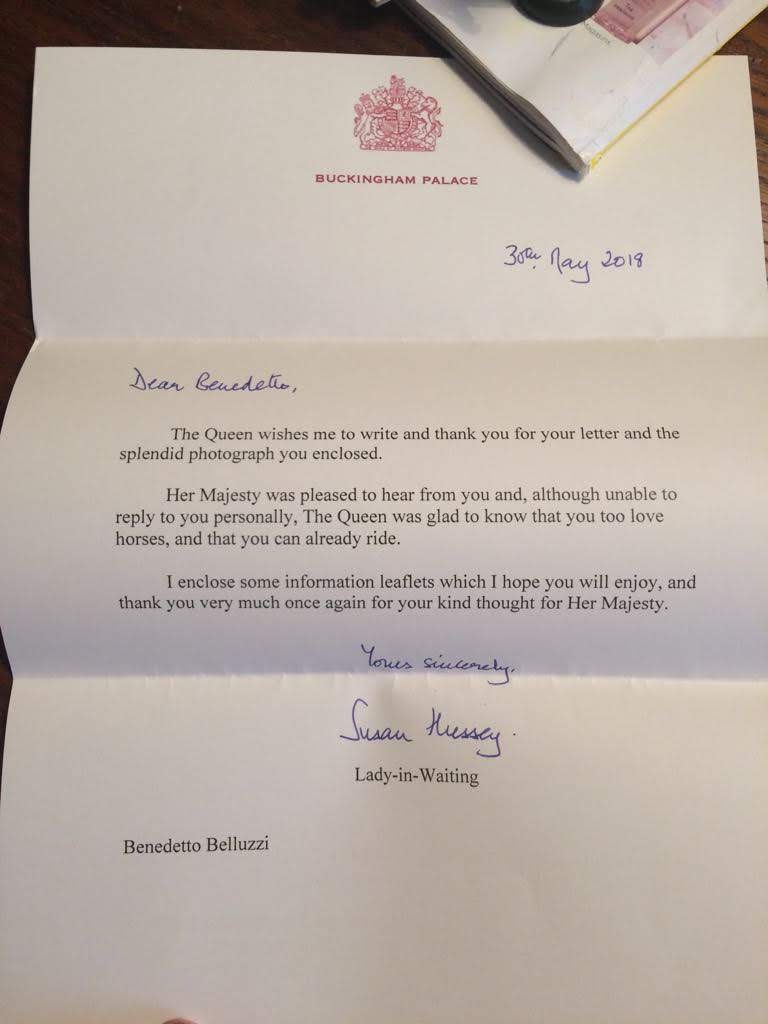 BUCKINGHAM PALACE
30th May 2018
Dear Benedetto,
The Queen wishes me to write and thank you for your letter and the
splendid photograph you enclosed.
Her Majesty was pleased to hear from you and, although unable to
reply to you personally, The Queen was glad to know that you too love
horses, and that you can already ride.
I enclose some information leaflets which I hope you will enjoy, and
thank you very much once again for your kind thought for Her Majesty.
Yours sincerely,
Susan Hussey.
Lady-in-Waiting
Benedetto Belluzzi